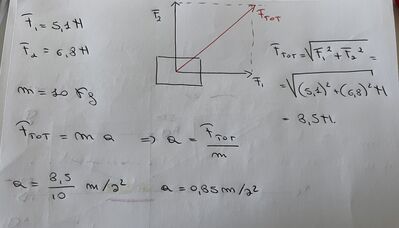 F̅₁ = 5,1 N
F̅₂ = 6,8 N
m = 10 kg
F̅₂
F̅TOT
F̅₁
F̅TOT = √F̅₁² + F̅₂² =
= √(5,1)² + (6,8)² N
= 8,5 N.
F̅TOT = m a ⇒ a = F̅TOT / m
a = 8,5 / 10 m/s² a = 0,85 m/s²